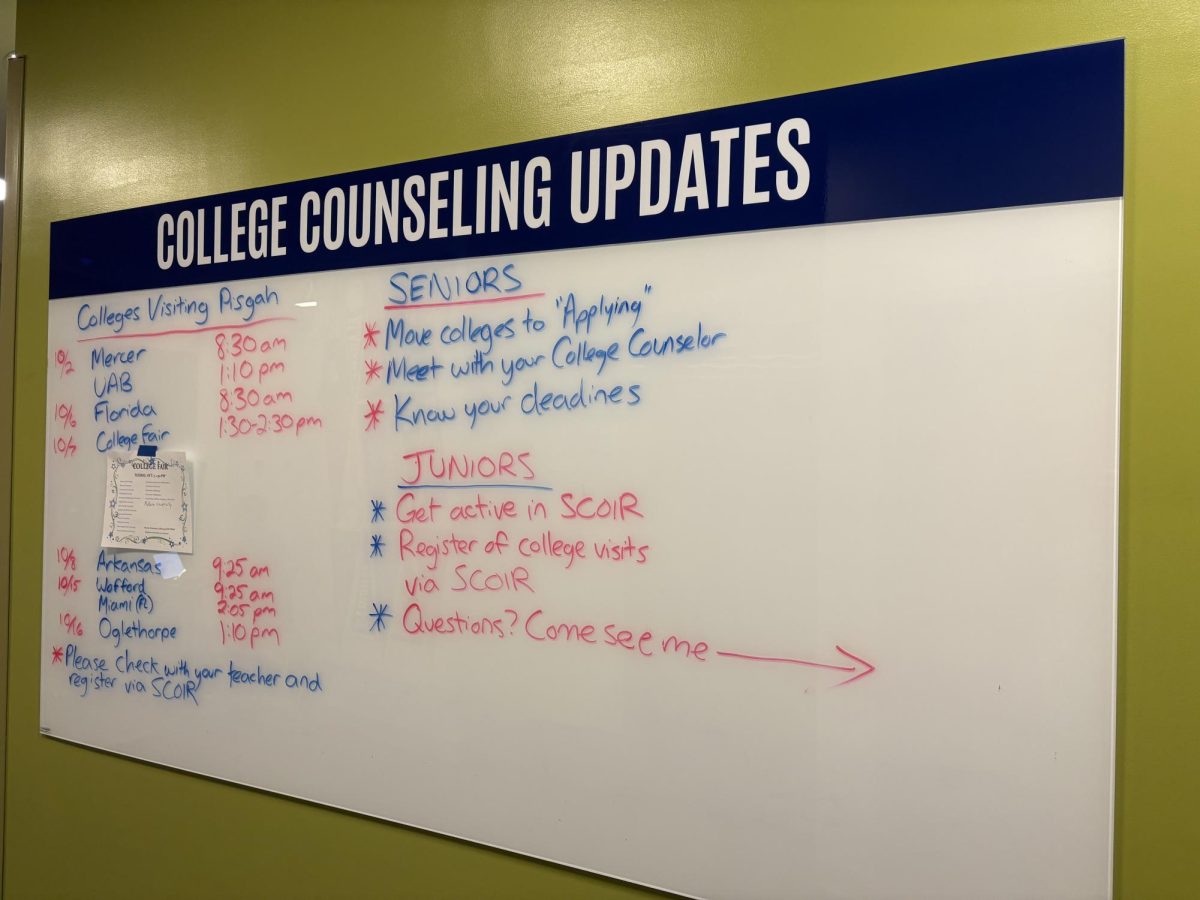 COLLEGE COUNSELING UPDATES
Colleges Visiting Pisgah
10/2 Mercer 8:30 am
UAB 1:10 pm
10/6 Florida 8:30 am
10/7 College Fair 1:30-2:30 pm
COLLEGE FAIR
10/8 Arkansas 9:25 am
10/15 Wofford 9:25 am
Miami (FL) 2:05 pm
10/16 Oglethorpe 1:10 pm
*Please check with your teacher and
register via SCOIR
SENIORS
* Move colleges to "Applying"
* Meet with your College Counselor
* Know your deadines
JUNIORS
* Get active in SCOIR
* Register of college visits
via SCOIR
* Questions? Come see me